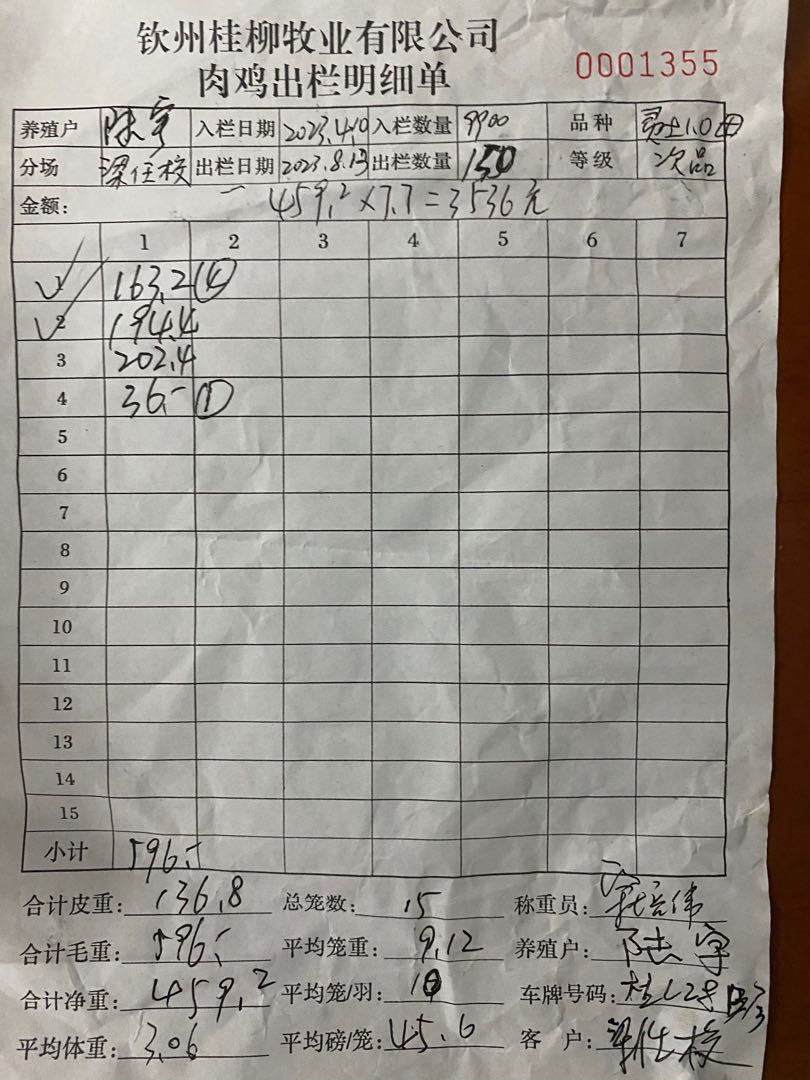 钦州桂柳牧业有限公司
肉鸡出栏明细单
0001355
养殖户 陆宇 入栏日期 2023.4.10 入栏数量 9900 品种
分场 梁任校 出栏日期 2023.8.13 出栏数量 150 等级 次品
金额: 459.2×7.7=3536元
1 2 3 4 5 6 7
163.2 ④
2 194.4
3 202.4
4 36.- ①
5
6
7
8
9
10
11
12
13
14
15
小计 596.-
合计皮重: 136.8 总笼数: 15 称重员:
合计毛重: 596.- 平均笼重: 9.12 养殖户: 陆宇
合计净重: 459.2 平均笼/羽: 10 车牌号码:
平均体重: 3.06 平均磅/笼: 45.6 客 户: